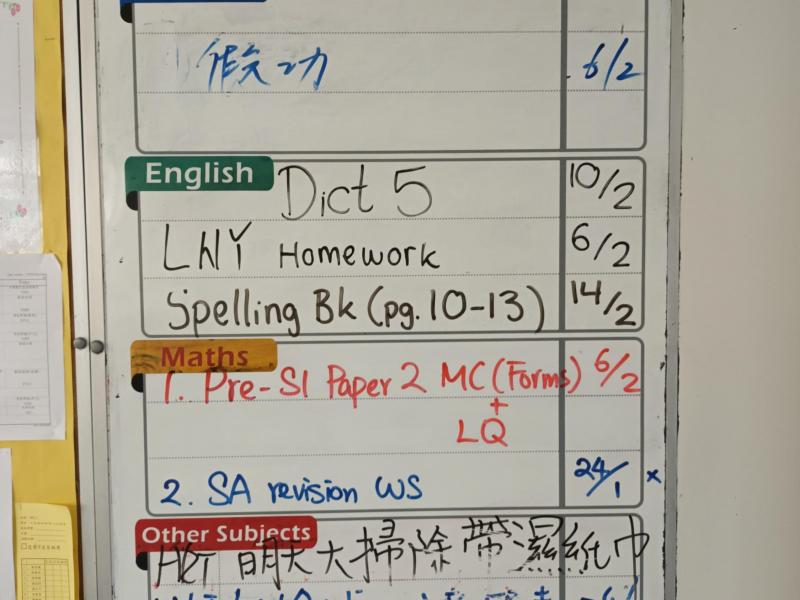 假功 6/2
English
Dict 5 10/2
LNY Homework 6/2
Spelling Bk (pg. 10-13) 14/2
Maths
1. Pre-S1 Paper 2 MC (Forms) 6/2
+
LQ
2. SA revision WS 24/1 x
Other Subjects
明天大掃除帶濕紙巾